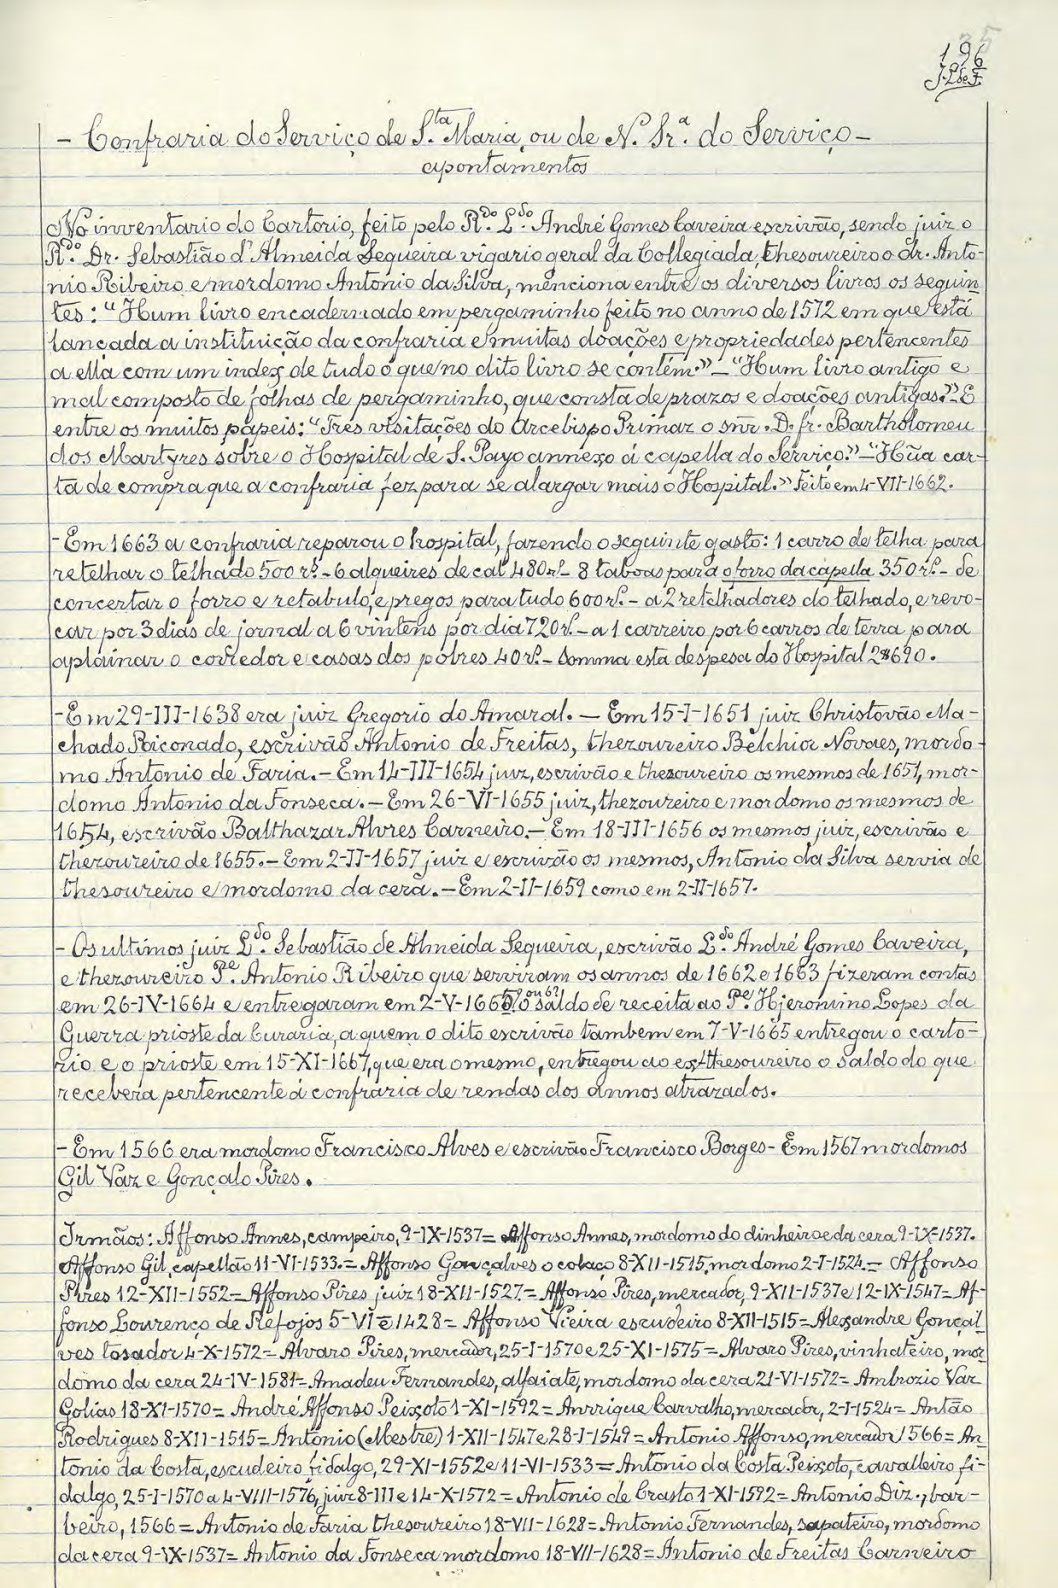 196
J.L.de F.
- Confraria do Serviço de S.ta Maria, ou de N. Sr.ª do Serviço -
apontamentos
No inventario do Cartorio, feito pelo R.do L.do André Gomes Caveira escrivão, sendo juiz o
R.do Dr. Sebastião d'Almeida Sequeira vigario geral da Collegiada, thesoureiro o dr. Anto-
nio Ribeiro e mordomo Antonio da Silva, menciona entre os diversos livros os seguin-
tes: "Hum livro encadernado em pergaminho feito no anno de 1572 em que está
lançada a instituição da confraria e muitas doações e propriedades pertencentes
a ella com um index de tudo o que no dito livro se contêm." - "Hum livro antigo e
mal composto de folhas de pergaminho, que consta de prazos e doações antigas." E
entre os muitos papeis: "Tres visitações do Arcebispo Primaz o snr. D. fr. Bartholomeu
dos Martyres sobre o Hospital de S. Payo annexo á capella do Serviço." - "Hũa car-
ta de compra que a confraria fez para se alargar mais o Hospital." Feito em 4-VII-1662.
- Em 1663 a confraria reparou o hospital, fazendo o seguinte gasto: 1 carro de telha para
retelhar o telhado 500 rs. - 6 alqueires de cal 480 rs. - 8 taboas para o forro da capella 350 rs. - de
concertar o forro e retabulo, e pregos para tudo 600 rs. - a 2 retelhadores do telhado, e revo-
car por 3 dias de jornal a 6 vintens por dia 720 rs. - a 1 carreiro por 6 carros de terra para
aplainar o corredor e casas dos pobres 40 rs. - Somma esta despesa do Hospital 2$690.
- Em 29-III-1638 era juiz Gregorio do Amaral. - Em 15-I-1651 juiz Christovão Ma-
chado Riconado, escrivão Antonio de Freitas, thezoureiro Belchior Novaes, mordo-
mo Antonio de Faria. - Em 14-III-1654 juiz, escrivão e thezoureiro os mesmos de 1651, mor-
domo Antonio da Fonseca. - Em 26-VI-1655 juiz, thezoureiro e mordomo os mesmos de
1654, escrivão Balthazar Alvres Carneiro. - Em 18-III-1656 os mesmos juiz, escrivão e
thezoureiro de 1655. - Em 2-II-1657 juiz e escrivão os mesmos, Antonio da Silva servia de
thesoureiro e mordomo da cera. - Em 2-II-1659 como em 2-II-1657.
- Os ultimos juiz L.do Sebastião de Almeida Sequeira, escrivão L.do André Gomes Caveira,
e thezoureiro P.e Antonio Ribeiro que serviram os annos de 1662 e 1663 fizeram contas
em 26-IV-1664 e entregaram em 2-V-1665 o saldo de receita ao P.e Hjeronimo Lopes da
Guerra prioste da Curaria, a quem o dito escrivão tambem em 7-V-1665 entregou o carto-
rio e o prioste em 15-XI-1667, que era o mesmo, entregou ao ex-thesoureiro o saldo do que
recebera pertencente á confraria de rendas dos annos atrazados.
- Em 1566 era mordomo Francisco Alves e escrivão Francisco Borges - Em 1567 mordomos
Gil Vaz e Gonçalo Pires.
Irmãos: Affonso Annes, campeiro, 9-IX-1537 = Affonso Annes, mordomo do dinheiro e da cera 9-IX-1537.
Affonso Gil, capellão 11-VI-1533. = Affonso Gonçalves o colaço 8-XII-1515, mordomo 2-I-1524. = Affonso
Pires 12-XII-1552 = Affonso Pires juiz 18-XII-1527 = Affonso Pires, mercador, 9-XII-1537 e 12-IX-1547 = Af-
fonso Lourenço de Refojos 5-VI e 1428 = Affonso Vieira escudeiro 8-XII-1515 = Alexandre Gonçal-
ves tosador 4-X-1572 = Alvaro Pires, mercador, 25-I-1570 e 25-XI-1575 = Alvaro Pires, vinhateiro, mor-
domo da cera 24-IV-1581 = Amadeu Fernandes, alfaiate, mordomo da cera 21-VI-1572 = Ambrozio Vaz
Golias 18-XI-1570 = André Affonso Peixoto 1-XI-1592 = Anrrique Carvalho, mercador, 2-I-1524 = Antão
Rodrigues 8-XII-1515 = Antonio (Mestre) 1-XII-1547 e 28-I-1549 = Antonio Affonso, mercador 1566 = An-
tonio da Costa, escudeiro fidalgo, 29-XI-1552 e 11-VI-1533 = Antonio da Costa Peixoto, cavalleiro fi-
dalgo, 25-I-1570 a 4-VIII-1576, juiz 8-III e 14-X-1572 = Antonio de Crasto 1-XI-1592 = Antonio Diz., bar-
beiro, 1566 = Antonio de Faria thesoureiro 18-VII-1628 = Antonio Fernandes, sapateiro, mordomo
da cera 9-IX-1537 = Antonio da Fonseca mordomo 18-VII-1628 = Antonio de Freitas Carneiro